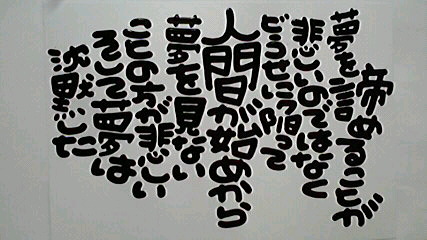 夢を諦めることが
悲しいのではなく
どうせ
人間が始めから
夢を見ない
ことの方が悲しい
そして夢は
沈黙した